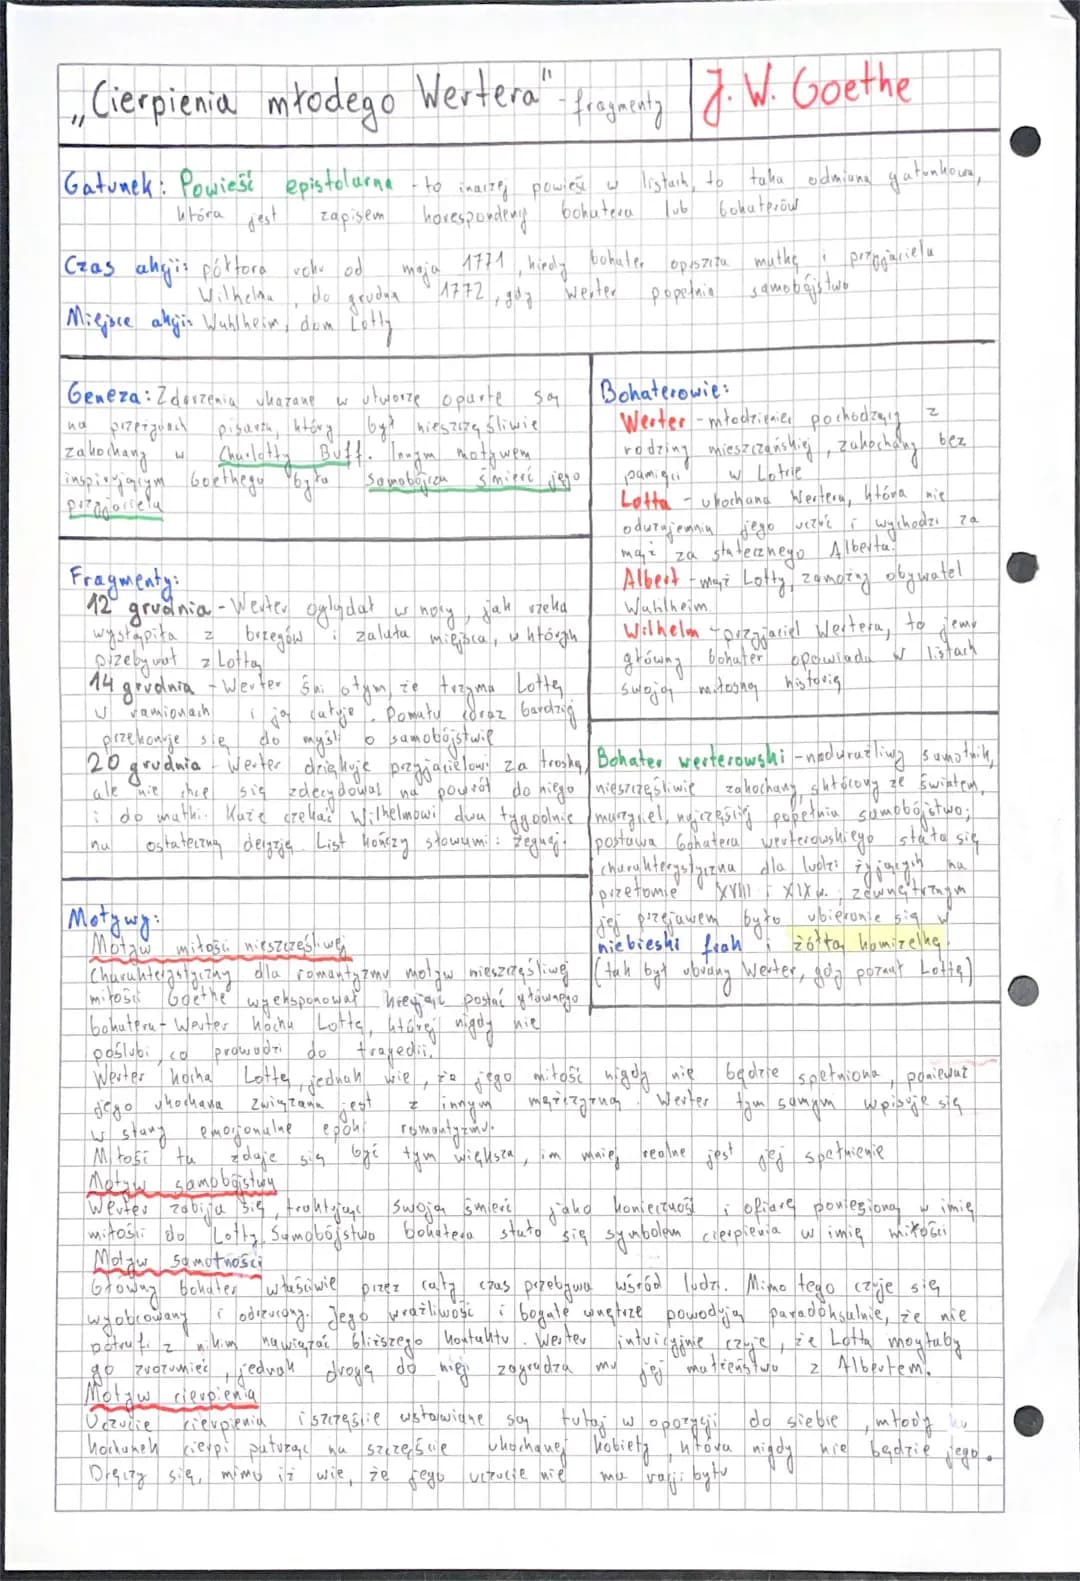 „Cierpienia młodego Wertera" - fragmenty
J. W. Goethe
Gatunek: Powieść epistolarna - to inaczej powieść w listach, to taka odmiana gatunkowa,
która jest zapisem korespondencji bohatera lub bohaterów
Czas akcji: półtora roku od maja 1771, kiedy bohater opuszcza matkę i przyjaciela
Wilhelma, do grudnia 1772, gdy Werter popełnia samobójstwo
Miejsce akcji: Wahlheim, dom Lotty
Geneza: Zdarzenia ukazane w utworze oparte są
na przeżyciach pisarza, który był nieszczęśliwie
zakochany w Charlotty Buff. Innym motywem
inspirującym Goethego była samobójcza śmierć jego
przyjaciela
Fragmenty:
12 grudnia - Werter oglądał w nocy, jak rzeka
wystąpiła z brzegów i zalała miejsca, w których
przebywał z Lottą
14 grudnia - Werter śni o tym, że trzyma Lottę
w ramionach i ją całuje. Pomału coraz bardziej
przekonuje się do myśli o samobójstwie
20 grudnia - Werter dziękuje przyjacielowi za troskę,
ale nie chce się zdecydować na powrót do niego
i do matki. Każe czekać Wilhelmowi dwa tygodnie
na ostateczną decyzję. List kończy słowami: żegnaj.
Bohaterowie:
Werter - młodzieniec pochodzący z
rodziny mieszczańskiej, zakochany bez
pamięci w Lotcie
Lotta - ukochana Wertera, która nie
odwzajemnia jego uczuć i wychodzi za
mąż za statecznego Alberta.
Albert - mąż Lotty, zamożny obywatel
Wahlheim
Wilhelm - przyjaciel Wertera, to jemu
główny bohater opowiada w listach
swoją miłosną historię
Bohater werterowski - nadwrażliwy samotnik,
nieszczęśliwie zakochany, skłócony ze światem,
marzyciel, najczęściej popełnia samobójstwo;
postawa bohatera werterowskiego stała się
charakterystyczna dla ludzi żyjących na
przełomie XVIII i XIX w.; zewnętrznym
jej przejawem było ubieranie się w
niebieski frak i żółtą kamizelkę
(tak był ubrany Werter, gdy poznał Lottę)
Motywy:
Motyw miłości nieszczęśliwej
Charakterystyczny dla romantyzmu motyw nieszczęśliwej
miłości Goethe wyeksponował kreując postać głównego
bohatera - Werter kocha Lottę, której nigdy nie
poślubi, co prowadzi do tragedii.
Werter kocha Lottę, jednak wie, że jego miłość nigdy nie będzie spełniona, ponieważ
jego ukochana związana jest z innym mężczyzną. Werter tym samym wpisuje się
w stany emocjonalne epoki romantyzmu.
Miłość ta zdaje się być tym większa, im mniej realne jest jej spełnienie
Motyw samobójstwa
Werter zabija się, traktując swoją śmierć jako konieczność i ofiarę poniesioną w imię
miłości do Lotty. Samobójstwo bohatera stało się symbolem cierpienia w imię miłości
Motyw samotności
Główny bohater właściwie przez cały czas przebywa wśród ludzi. Mimo tego czuje się
wyobcowany i odrzucony. Jego wrażliwość i bogate wnętrze powodują paradoksalnie, że nie
potrafi z nikim nawiązać bliższego kontaktu. Werter intuicyjnie czuje, że Lotta mogłaby
go zrozumieć, jednak drogę do niej zagradza mu jej małżeństwo z Albertem.
Motyw cierpienia
Uczucie cierpienia i szczęście ustawiane są tutaj w opozycji do siebie, młody
kochanek cierpi patrząc na szczęście ukochanej kobiety, która nigdy nie będzie jego.
Dręczy się, mimo iż wie, że jego uczucie nie ma racji bytu